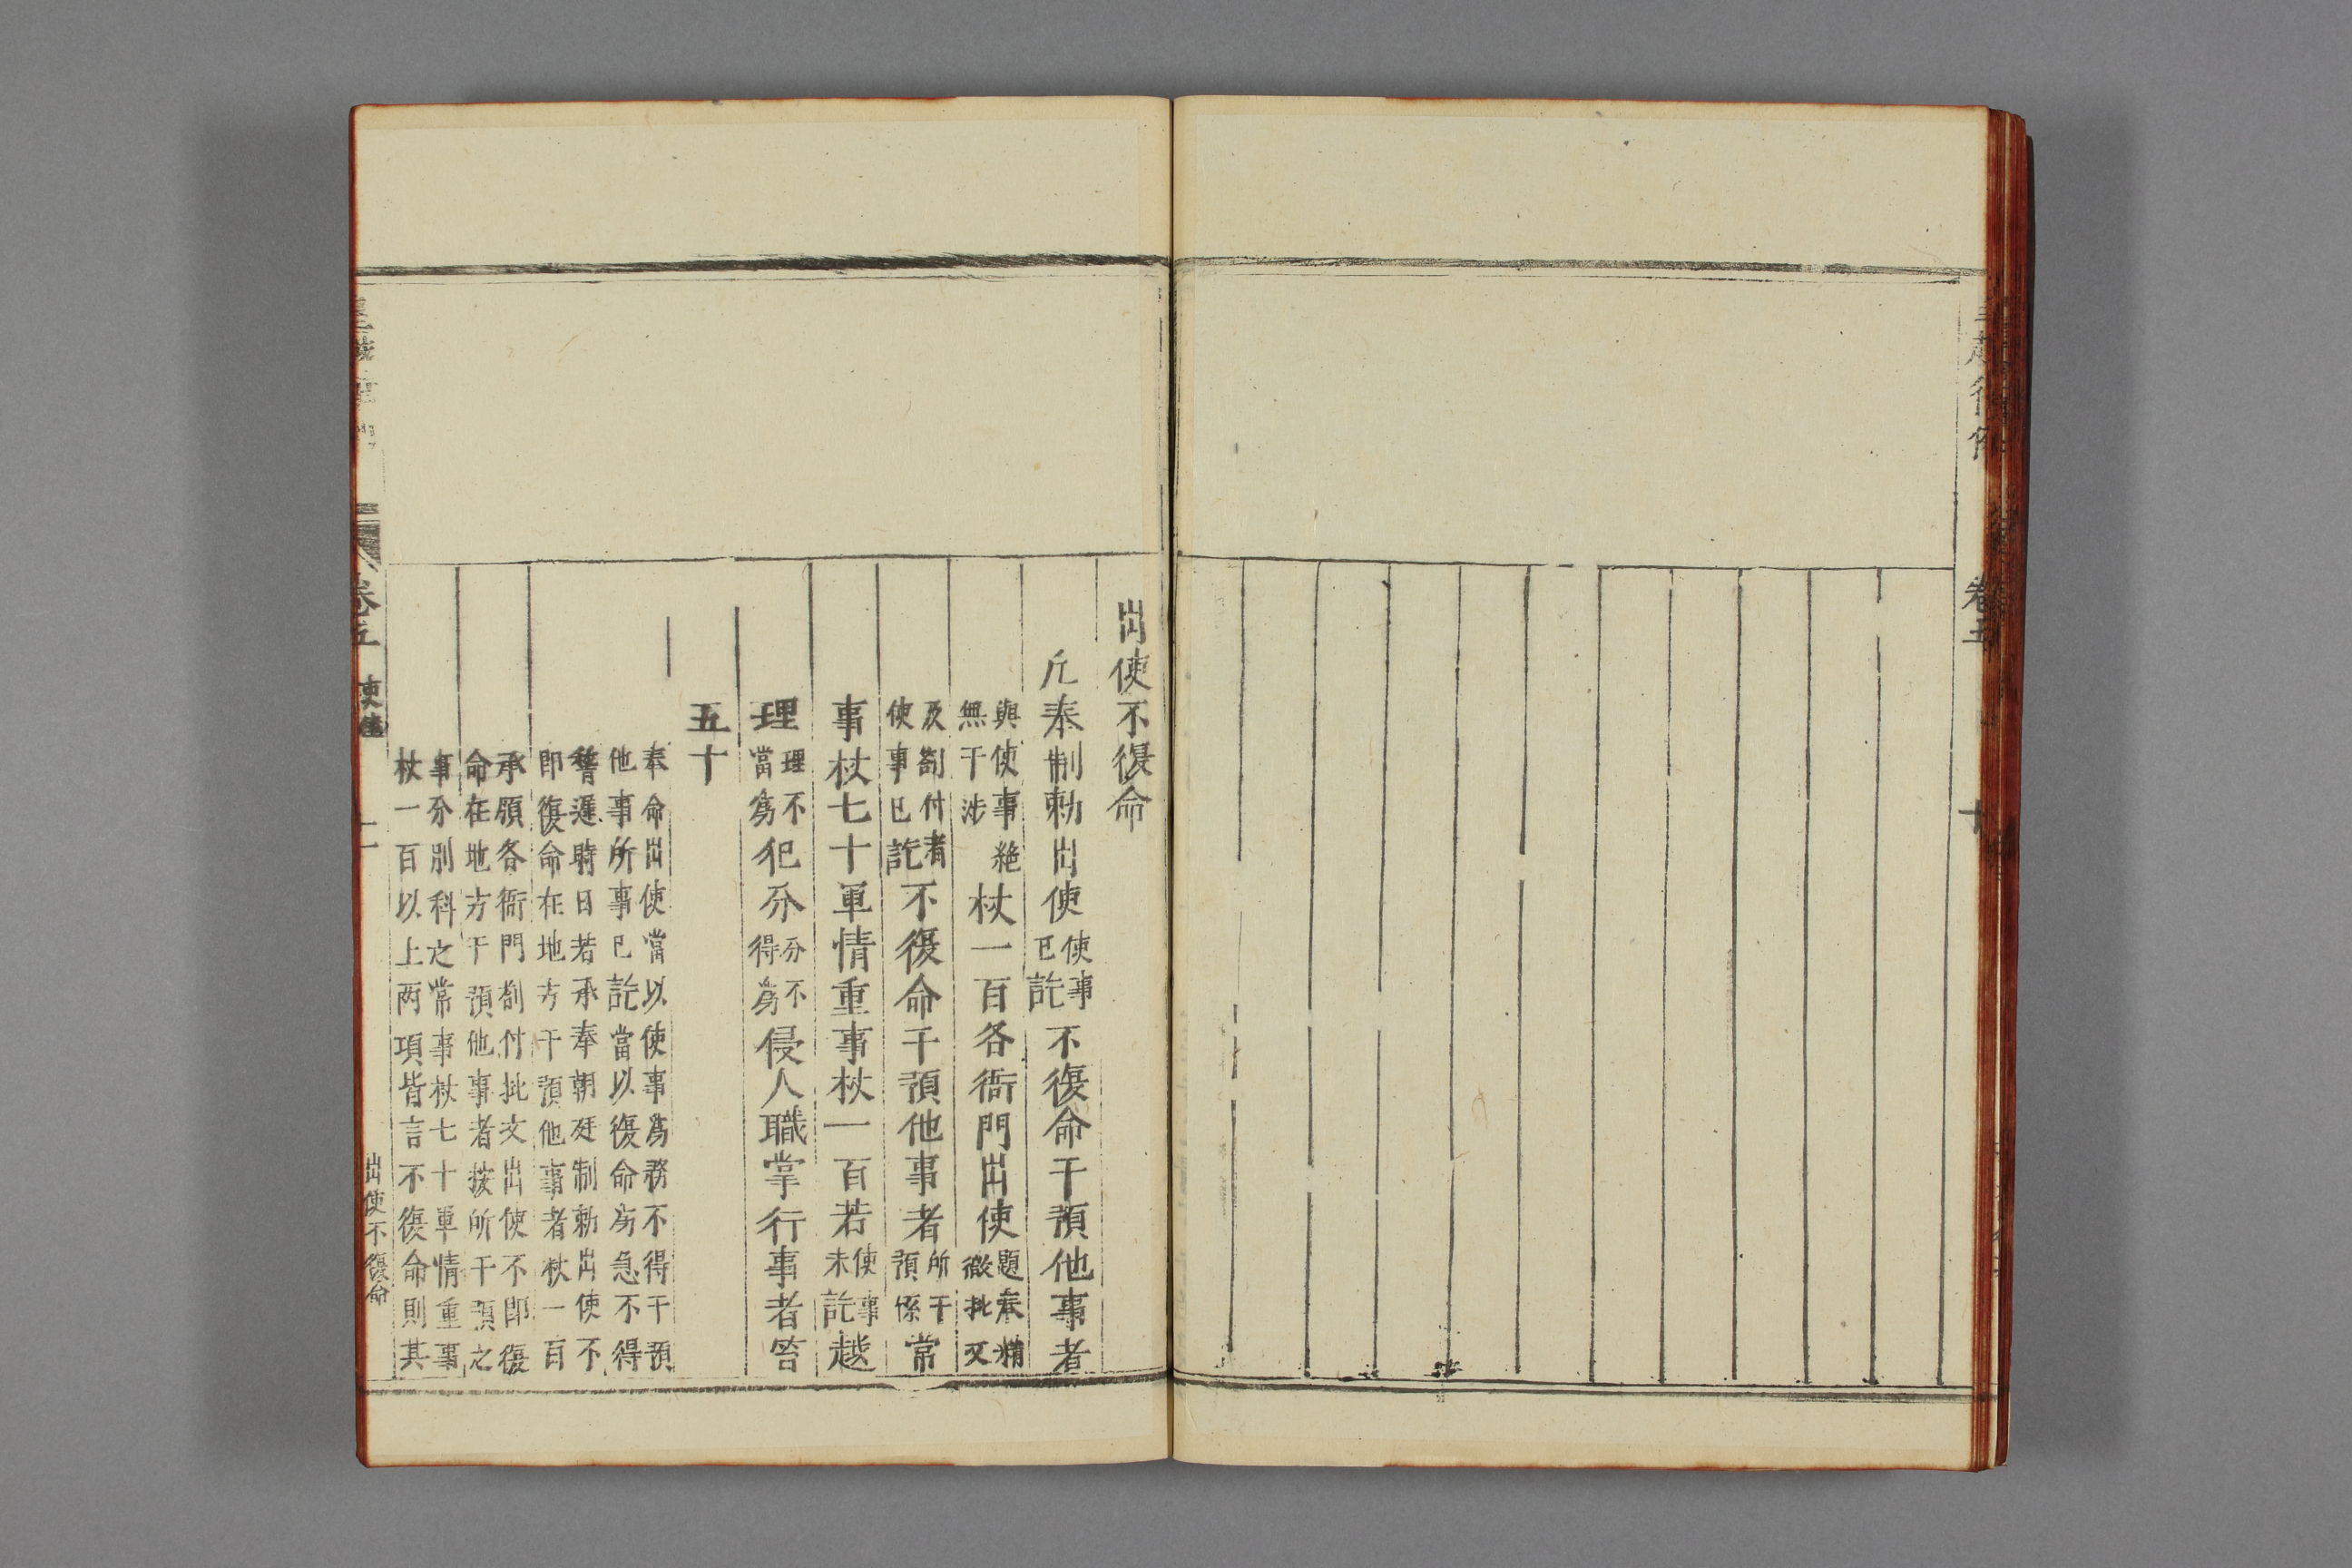 卷五
十
出使不復命
凡奉制勅出使使事已訖不復命干預他事者
與使事絶無干涉杖一百各衙門出使題奉精微批文
及劄付者使事已訖不復命干預他事者所干預係常
事杖七十軍情重事杖一百若使事未訖越
理理不當爲犯分分不得爲侵人職掌行事者笞
五十
奉命出使當以使事爲務不得干預
他事所事已訖當以復命爲急不得
稽遲時日若承奉朝廷制勅出使不
即復命在地方干預他事者杖一百
承領各衙門劄付批文出使不即復
命在地方干預他事者按所干預之
事分別科之常事杖七十軍情重事
杖一百以上两項皆言不復命則其
卷五
出使不復命